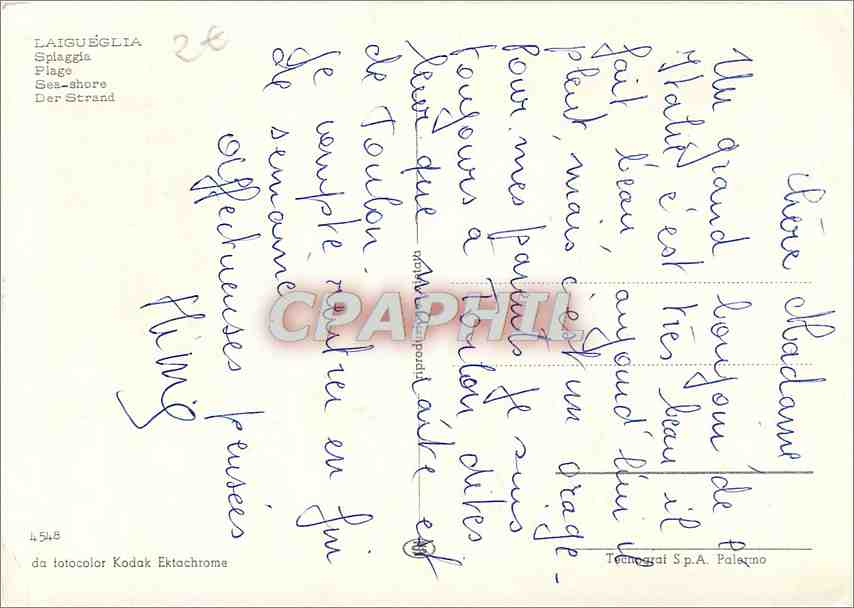 LAIGUEGLIA
Spiaggia
Plage
Sea-shore
Der Strand
2€
Chère Madame
Un grand bonjour de l'
Italie, c'est très beau il
fait beau, aujourd'hui il
pleut, mais c'est un orage.
Pour mes parents je suis
toujours à Toulon dites
leur que ma carte est
de Toulon.
Je compte rentrer en fin
de semaine
affectueuses pensées
Mimi
CPAPHIL
4548
da fotocolor Kodak Ektachrome
Tecnograf S.p.A. Palermo